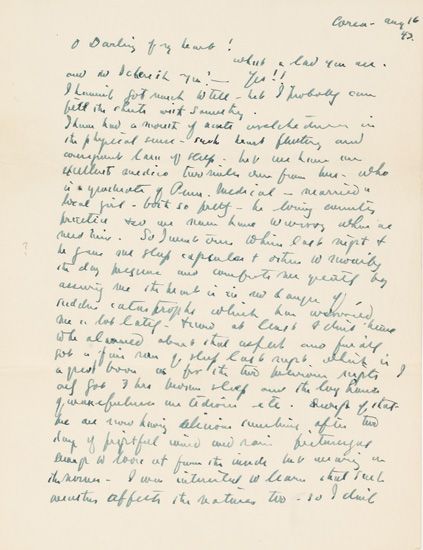 Corea - Aug 16
43.
O Darling of my heart!
what a lad you are.
and so I cherish you! — Yes!!
I haven't got much to tell - but I probably can
fill the sheets with something.
I have had a of acute in
the physical sense - such heart fluttery and
consequent lack of sleep. but we have an
excellent medico two miles over from here - who
is a graduate of Penn. Medical - married a
local girl - both so pretty - he loving country
practice & so we now have when we
need him. So I went over there last night &
he gave me sleep capsules & others to
the day and comforts me greatly by
assuring me the heart is in no danger of
sudden catastrophe which has worried
me a lot lately - & now at least I don't have
to be alarmed about that aspect and finally
got a fine run of sleep last night. which is
a great boon as for the two previous nights I
only got 3 hrs broken sleep and the long hours
of wakefulness are tedious etc. Enough of that.
We are now having delicious sunshine after two
days of frightful wind and rain picturesque
enough to look at from the inside but wearing on
the nerves - I was interested to learn that such
weather affects the natives too - so I don't